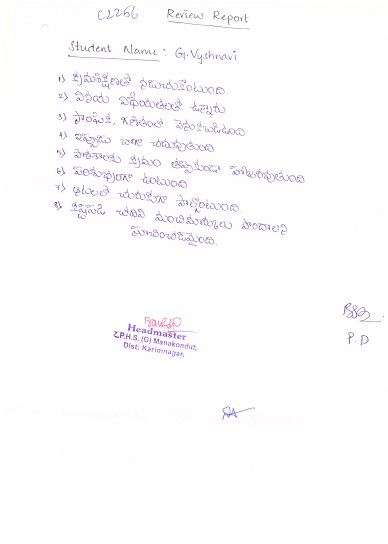 C2266 Review Report
Student Name : G. Vyshnavi
1) క్రమశిక్షణతో నడుచుకొంటుంది.
2) వినయ విధేయతలతో ఉన్నారు
3) సాంఘిక, గణితంలో వెనుకబడింది
4) ఇప్పుడు బాగా చదువుతుంది
5) పాఠశాలకు క్రమం తప్పకుండా హాజరవుతుంది
6) పరిశుభ్రంగా ఉంటుంది
7) ఆటలలో చురుకుగా పాల్గొంటుంది.
8) కష్టపడి చదివి మంచిమార్కులు పొందాలని
సూచించడమైంది.
Headmaster
Z.P.H.S. (G) Manakondur,
Dist: Karimnagar.
P.D